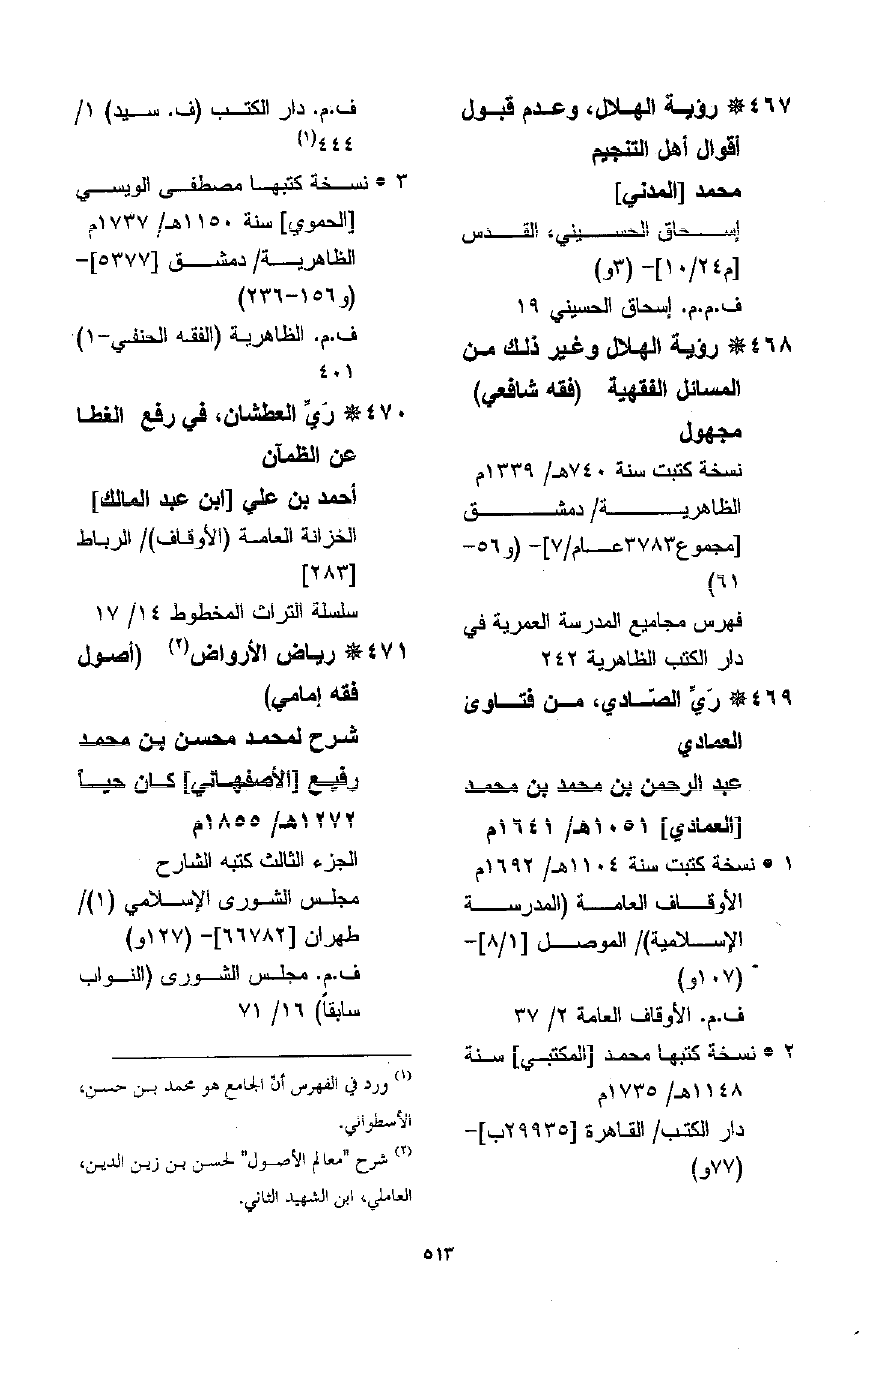 ٤٦٧ * رؤية الهلال، وعدم قبول
أقوال أهل التنجيم
محمد [المدني]
إسحاق الحسيني، القدس
[م١٠/٢٤]– (٣و)
ف.م.م. إسحاق الحسيني ١٩
٤٦٨ * رؤية الهلال وغير ذلك من
المسائل الفقهية (فقه شافعي)
مجهول
نسخة كتبت سنة ٧٤٠هـ/ ١٣٣٩م
الظاهرية/ دمشق
[مجموع٣٧٨٣عام/٧]– (و٥٦–
٦١)
فهرس مجاميع المدرسة العمرية في
دار الكتب الظاهرية ٢٤٢
٤٦٩ * رَيِّ الصّادي، من فتاوى
العمادي
عبد الرحمن بن محمد بن محمد
[العمادي] ١٠٥١هـ/ ١٦٤١م
١ * نسخة كتبت سنة ١١٠٤هـ/ ١٦٩٢م
الأوقاف العامة (المدرسة
الإسلامية)/ الموصل [٨/١]–
(١٠٧و)
ف.م. الأوقاف العامة ٢/ ٣٧
٢ * نسخة كتبها محمد [المكتبي] سنة
١١٤٨هـ/ ١٧٣٥م
دار الكتب/ القاهرة [٢٩٩٣٥ب]–
(٧٧و)
ف.م. دار الكتب (ف. سيد) ١/
٤٤٤(١)
٣ * نسخة كتبها مصطفى الويسي
[الحموي] سنة ١١٥٠هـ/ ١٧٣٧م
الظاهرية/ دمشق [٥٣٧٧]–
(و١٥٦–٢٣٦)
ف.م. الظاهرية (الفقه الحنفي–١)
٤٠١
٤٧٠ * رَيِّ العطشان، في رفع الغطا
عن الظمآن
أحمد بن علي [ابن عبد المالك]
الخزانة العامة (الأوقاف)/ الرباط
[٢٨٣]
سلسلة التراث المخطوط ١٤/ ١٧
٤٧١ * رياض الأرواض(٢) (أصول
فقه إمامي)
شرح لمحمد محسن بن محمد
رفيع [الأصفهاني] كان حياً
١٢٧٢هـ/ ١٨٥٥م
الجزء الثالث كتبه الشارح
مجلس الشورى الإسلامي (١)/
طهران [٦٦٧٨٢]– (١٢٧و)
ف.م. مجلس الشورى (النواب
سابقاً) ١٦/ ٧١
(١) ورد في الفهرس أنّ الجامع هو محمد بن حسن،
الأسطواني.
(٢) شرح "معالم الأصول" لحسن بن زين الدين،
العاملي، ابن الشهيد الثاني.
٥١٣